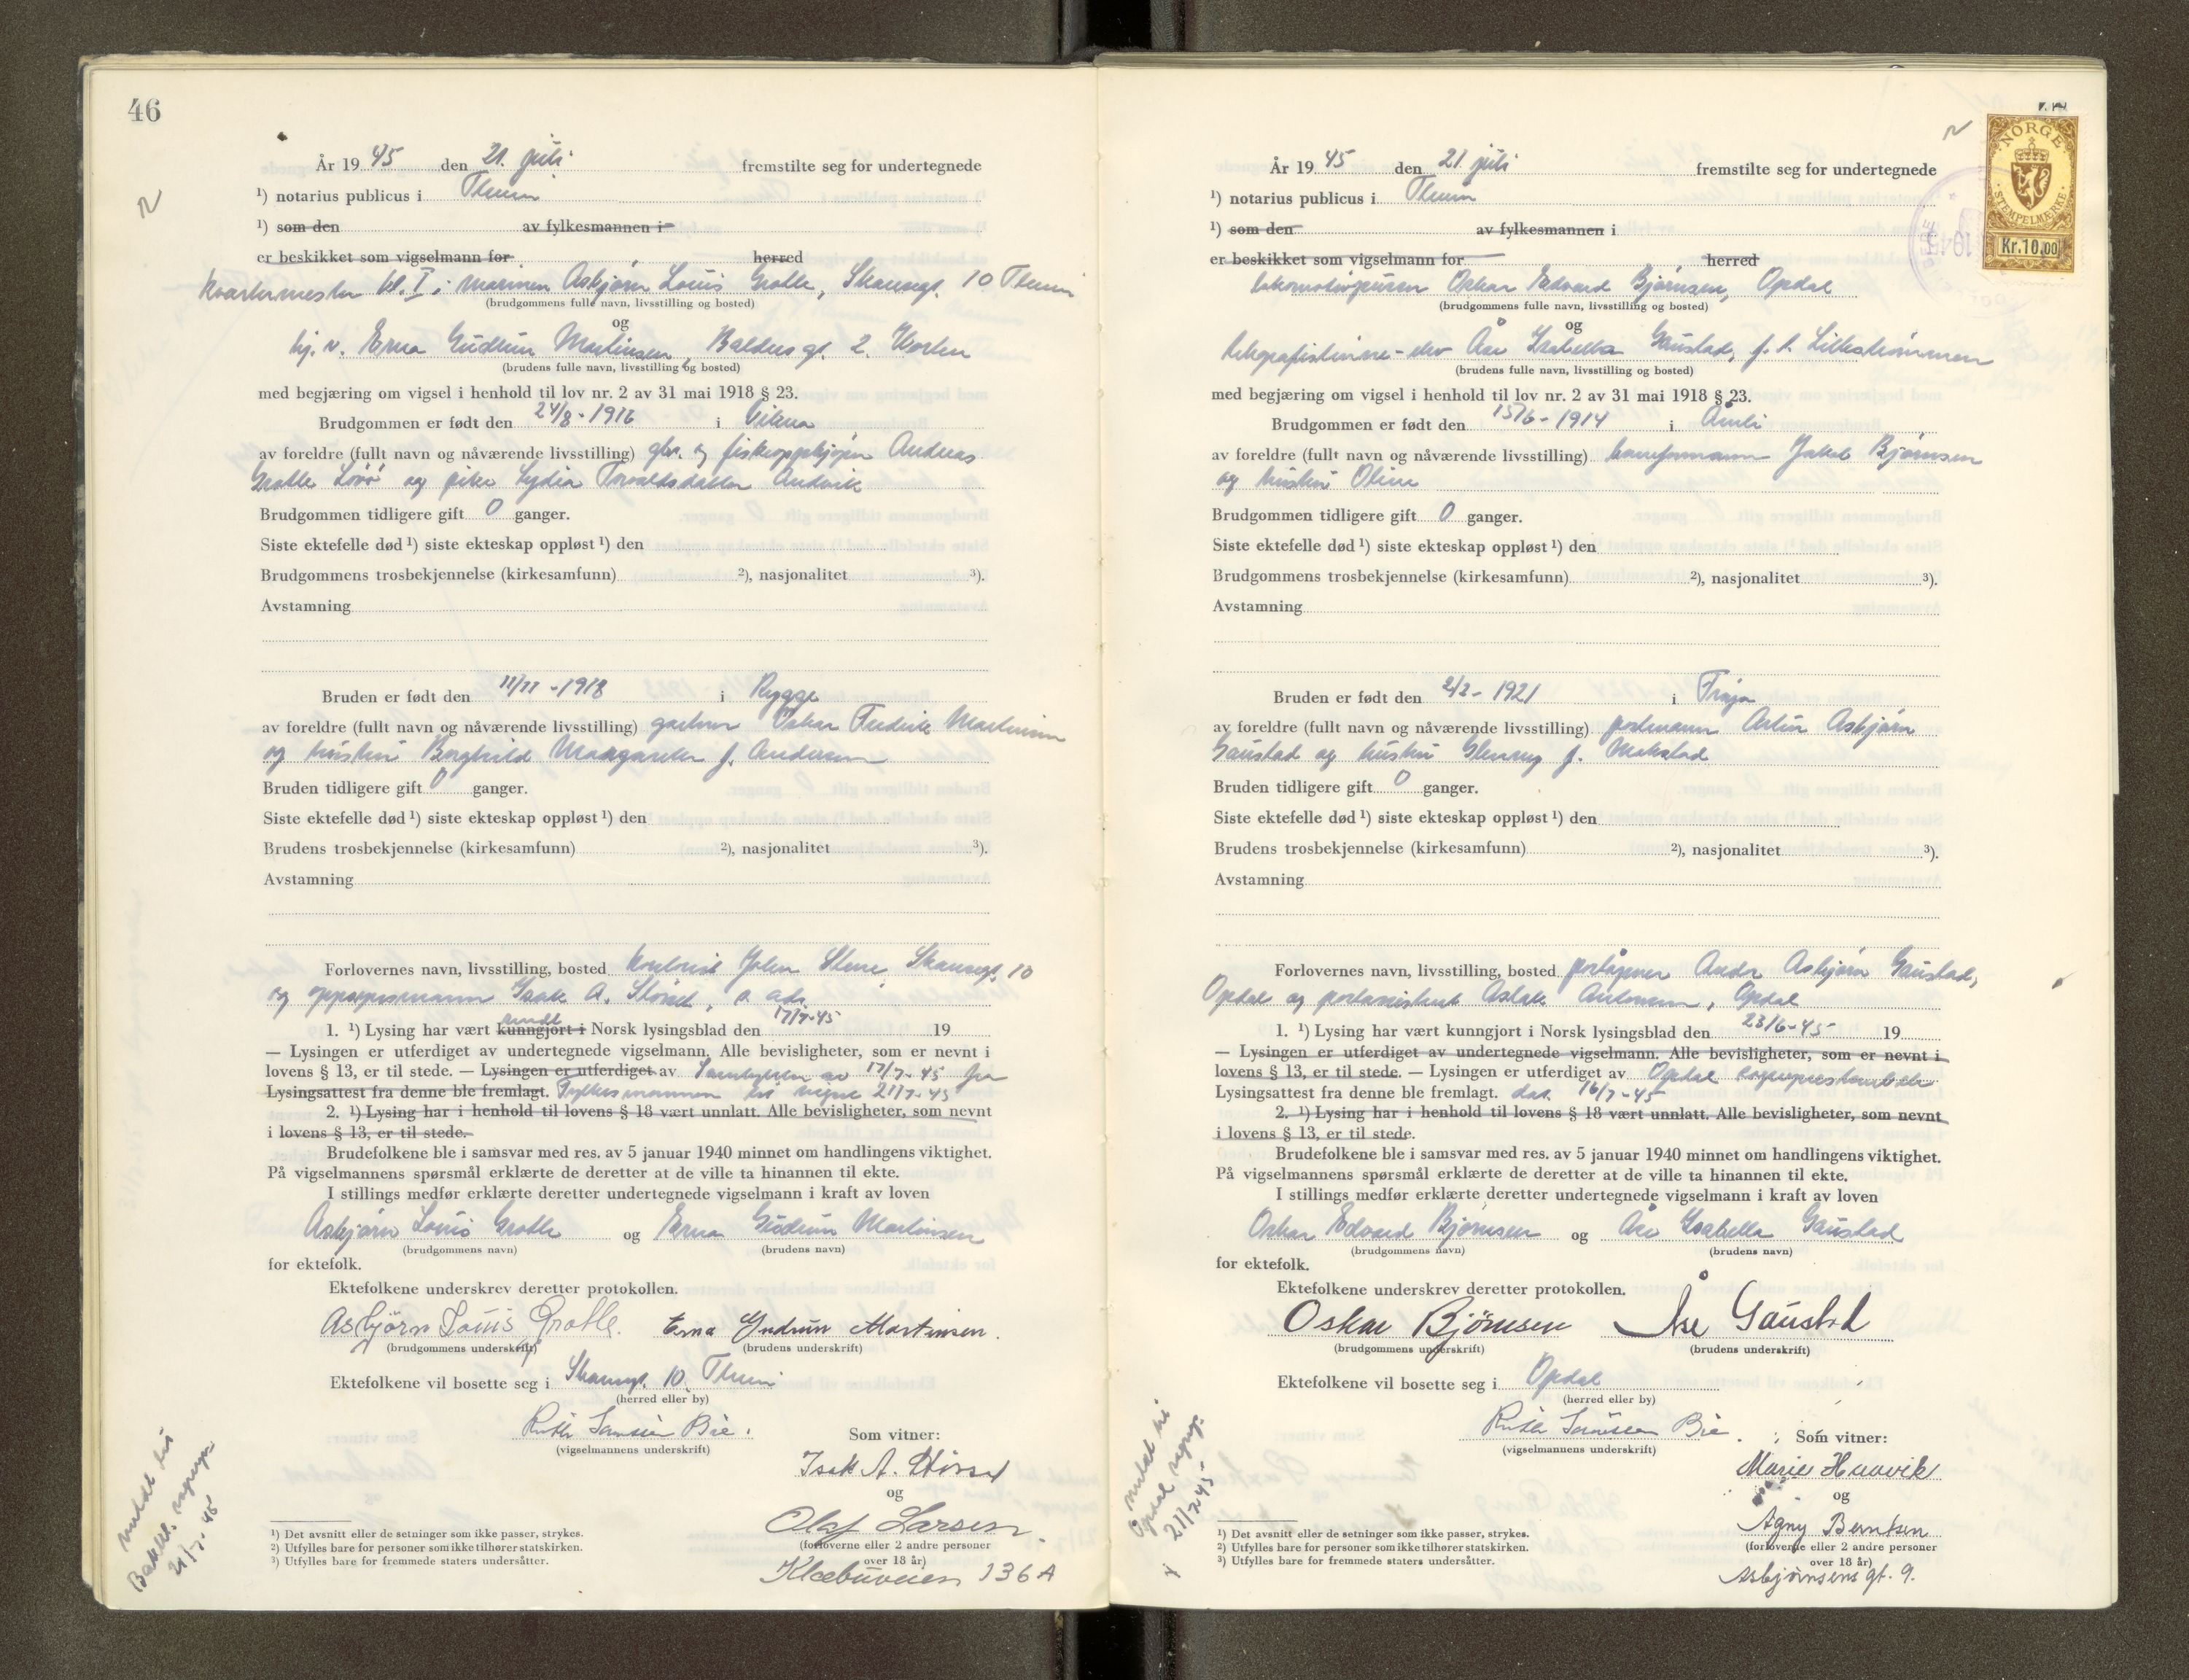 46
År 19 45 den 21. juli fremstilte seg for undertegnede
¹) notarius publicus i Theim
¹) som den av fylkesmannen i
er beskikket som vigselmann for herred
kvartermester kl. I i marinen Asbjørn Louis Grotle, Skansegt. 10 Theim
(brudgommens fulle navn, livsstilling og bosted)
og
hj. v. Erna Gudrun Martinsen, Baldersgt. 2. Horten
(brudens fulle navn, livsstilling og bosted)
med begjæring om vigsel i henhold til lov nr. 2 av 31 mai 1918 § 23.
Brudgommen er født den 24/8 - 1916 i Vikna
av foreldre (fullt navn og nåværende livsstilling) gbr. og fiskeoppkjøper Andreas
Grotle og pike Lydia Torvaldsdatter Andvik
Brudgommen tidligere gift 0 ganger.
Siste ektefelle død ¹) siste ekteskap oppløst ¹) den
Brudgommens trosbekjennelse (kirkesamfunn) ²), nasjonalitet ³).
Avstamning
Bruden er født den 11/11 - 1918 i Rygge
av foreldre (fullt navn og nåværende livsstilling) gartner Oskar Fredrik Martinsen
og hustru Borghild Margarethe f. Andersen
Bruden tidligere gift 0 ganger.
Siste ektefelle død ¹) siste ekteskap oppløst ¹) den
Brudens trosbekjennelse (kirkesamfunn) ²), nasjonalitet ³).
Avstamning
Forlovernes navn, livsstilling, bosted John Skansegt. 10
og oppsynsmann Isak A. Störset, s. ads.
sendt
1. ¹) Lysing har vært kunngjort i Norsk lysingsblad den 17/7-45 19
— Lysingen er utferdiget av undertegnede vigselmann. Alle bevisligheter, som er nevnt i
lovens § 13, er til stede. — Lysingen er utferdiget av Samtykke av 17/7-45 fra
Lysingsattest fra denne ble fremlagt. Fylkesmannen til vigsel 21/7-45
2. ¹) Lysing har i henhold til lovens § 18 vært unnlatt. Alle bevisligheter, som nevnt
i lovens § 13, er til stede.
Brudefolkene ble i samsvar med res. av 5 januar 1940 minnet om handlingens viktighet.
På vigselmannens spørsmål erklærte de deretter at de ville ta hinannen til ekte.
I stillings medfør erklærte deretter undertegnede vigselmann i kraft av loven
Asbjørn Louis Grotle og Erna Gudrun Martinsen
(brudgommens navn) (brudens navn)
for ektefolk.
Ektefolkene underskrev deretter protokollen.
Asbjørn Louis Grotle. Erna Gudrun Martinsen.
(brudgommens underskrift) (brudens underskrift)
Ektefolkene vil bosette seg i Skansegt. 10. Theim
(herred eller by)
Ruth Bie.
(vigselmannens underskrift)
Som vitner:
Isak A. Störset
og
Olaf Larsen.
(forloverne eller 2 andre personer
over 18 år)
Klæbuveien 136 A
meldt til
Bakkl. sogneprest
21/7-45
¹) Det avsnitt eller de setninger som ikke passer, strykes.
²) Utfylles bare for personer som ikke tilhører statskirken.
³) Utfylles bare for fremmede staters undersåtter.
NORGE
STEMPELMERKE
Kr.10.00
År 19 45 den 21. juli fremstilte seg for undertegnede
¹) notarius publicus i Theim
¹) som den av fylkesmannen i
er beskikket som vigselmann for herred
lokomotivpusser Oskar Edvard Bjørnsen, Opdal
(brudgommens fulle navn, livsstilling og bosted)
og
telegrafistinne-elev Åse Isabella Gaustad, f. t. Lillestrømmen
(brudens fulle navn, livsstilling og bosted)
med begjæring om vigsel i henhold til lov nr. 2 av 31 mai 1918 § 23.
Brudgommen er født den 15/6 - 1914 i Åmli
av foreldre (fullt navn og nåværende livsstilling) baneformann Jakob Bjørnsen
og hustru Oline
Brudgommen tidligere gift 0 ganger.
Siste ektefelle død ¹) siste ekteskap oppløst ¹) den
Brudgommens trosbekjennelse (kirkesamfunn) ²), nasjonalitet ³).
Avstamning
Bruden er født den 2/2 - 1921 i Frøya
av foreldre (fullt navn og nåværende livsstilling) postmann Asbjørn
Gaustad og hustru f. Mekstad
Bruden tidligere gift 0 ganger.
Siste ektefelle død ¹) siste ekteskap oppløst ¹) den
Brudens trosbekjennelse (kirkesamfunn) ²), nasjonalitet ³).
Avstamning
Forlovernes navn, livsstilling, bosted poståpner Asbjørn Gaustad,
Opdal og Aslak Opdal
1. ¹) Lysing har vært kunngjort i Norsk lysingsblad den 23/6-45 19
— Lysingen er utferdiget av undertegnede vigselmann. Alle bevisligheter, som er nevnt i
lovens § 13, er til stede. — Lysingen er utferdiget av Opdal sogneprestembete
Lysingsattest fra denne ble fremlagt. dat. 16/7-45
2. ¹) Lysing har i henhold til lovens § 18 vært unnlatt. Alle bevisligheter, som nevnt
i lovens § 13, er til stede.
Brudefolkene ble i samsvar med res. av 5 januar 1940 minnet om handlingens viktighet.
På vigselmannens spørsmål erklærte de deretter at de ville ta hinannen til ekte.
I stillings medfør erklærte deretter undertegnede vigselmann i kraft av loven
Oskar Edvard Bjørnsen og Åse Isabella Gaustad
(brudgommens navn) (brudens navn)
for ektefolk.
Ektefolkene underskrev deretter protokollen.
Oskar Bjørnsen Åse Gaustad
(brudgommens underskrift) (brudens underskrift)
Ektefolkene vil bosette seg i Opdal
(herred eller by)
Ruth Bie.
(vigselmannens underskrift)
Som vitner:
Marie Huavik
og
Agny Berntsen
(forloverne eller 2 andre personer
over 18 år)
Asbjørnsens gt. 9.
meldt til
Opdal sognepr.
21/7-45
¹) Det avsnitt eller de setninger som ikke passer, strykes.
²) Utfylles bare for personer som ikke tilhører statskirken.
³) Utfylles bare for fremmede staters undersåtter.